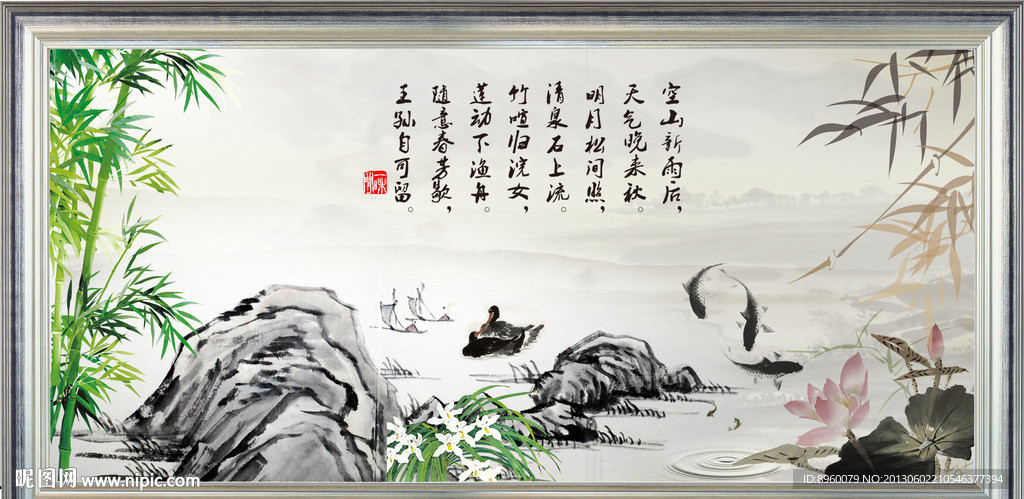 空山新雨后，
天气晚来秋。
明月松间照，
清泉石上流。
竹喧归浣女，
莲动下渔舟。
随意春芳歇，
王孙自可留。
昵图网 www.nipic.com
ID:8960079 NO:20130602210546377394